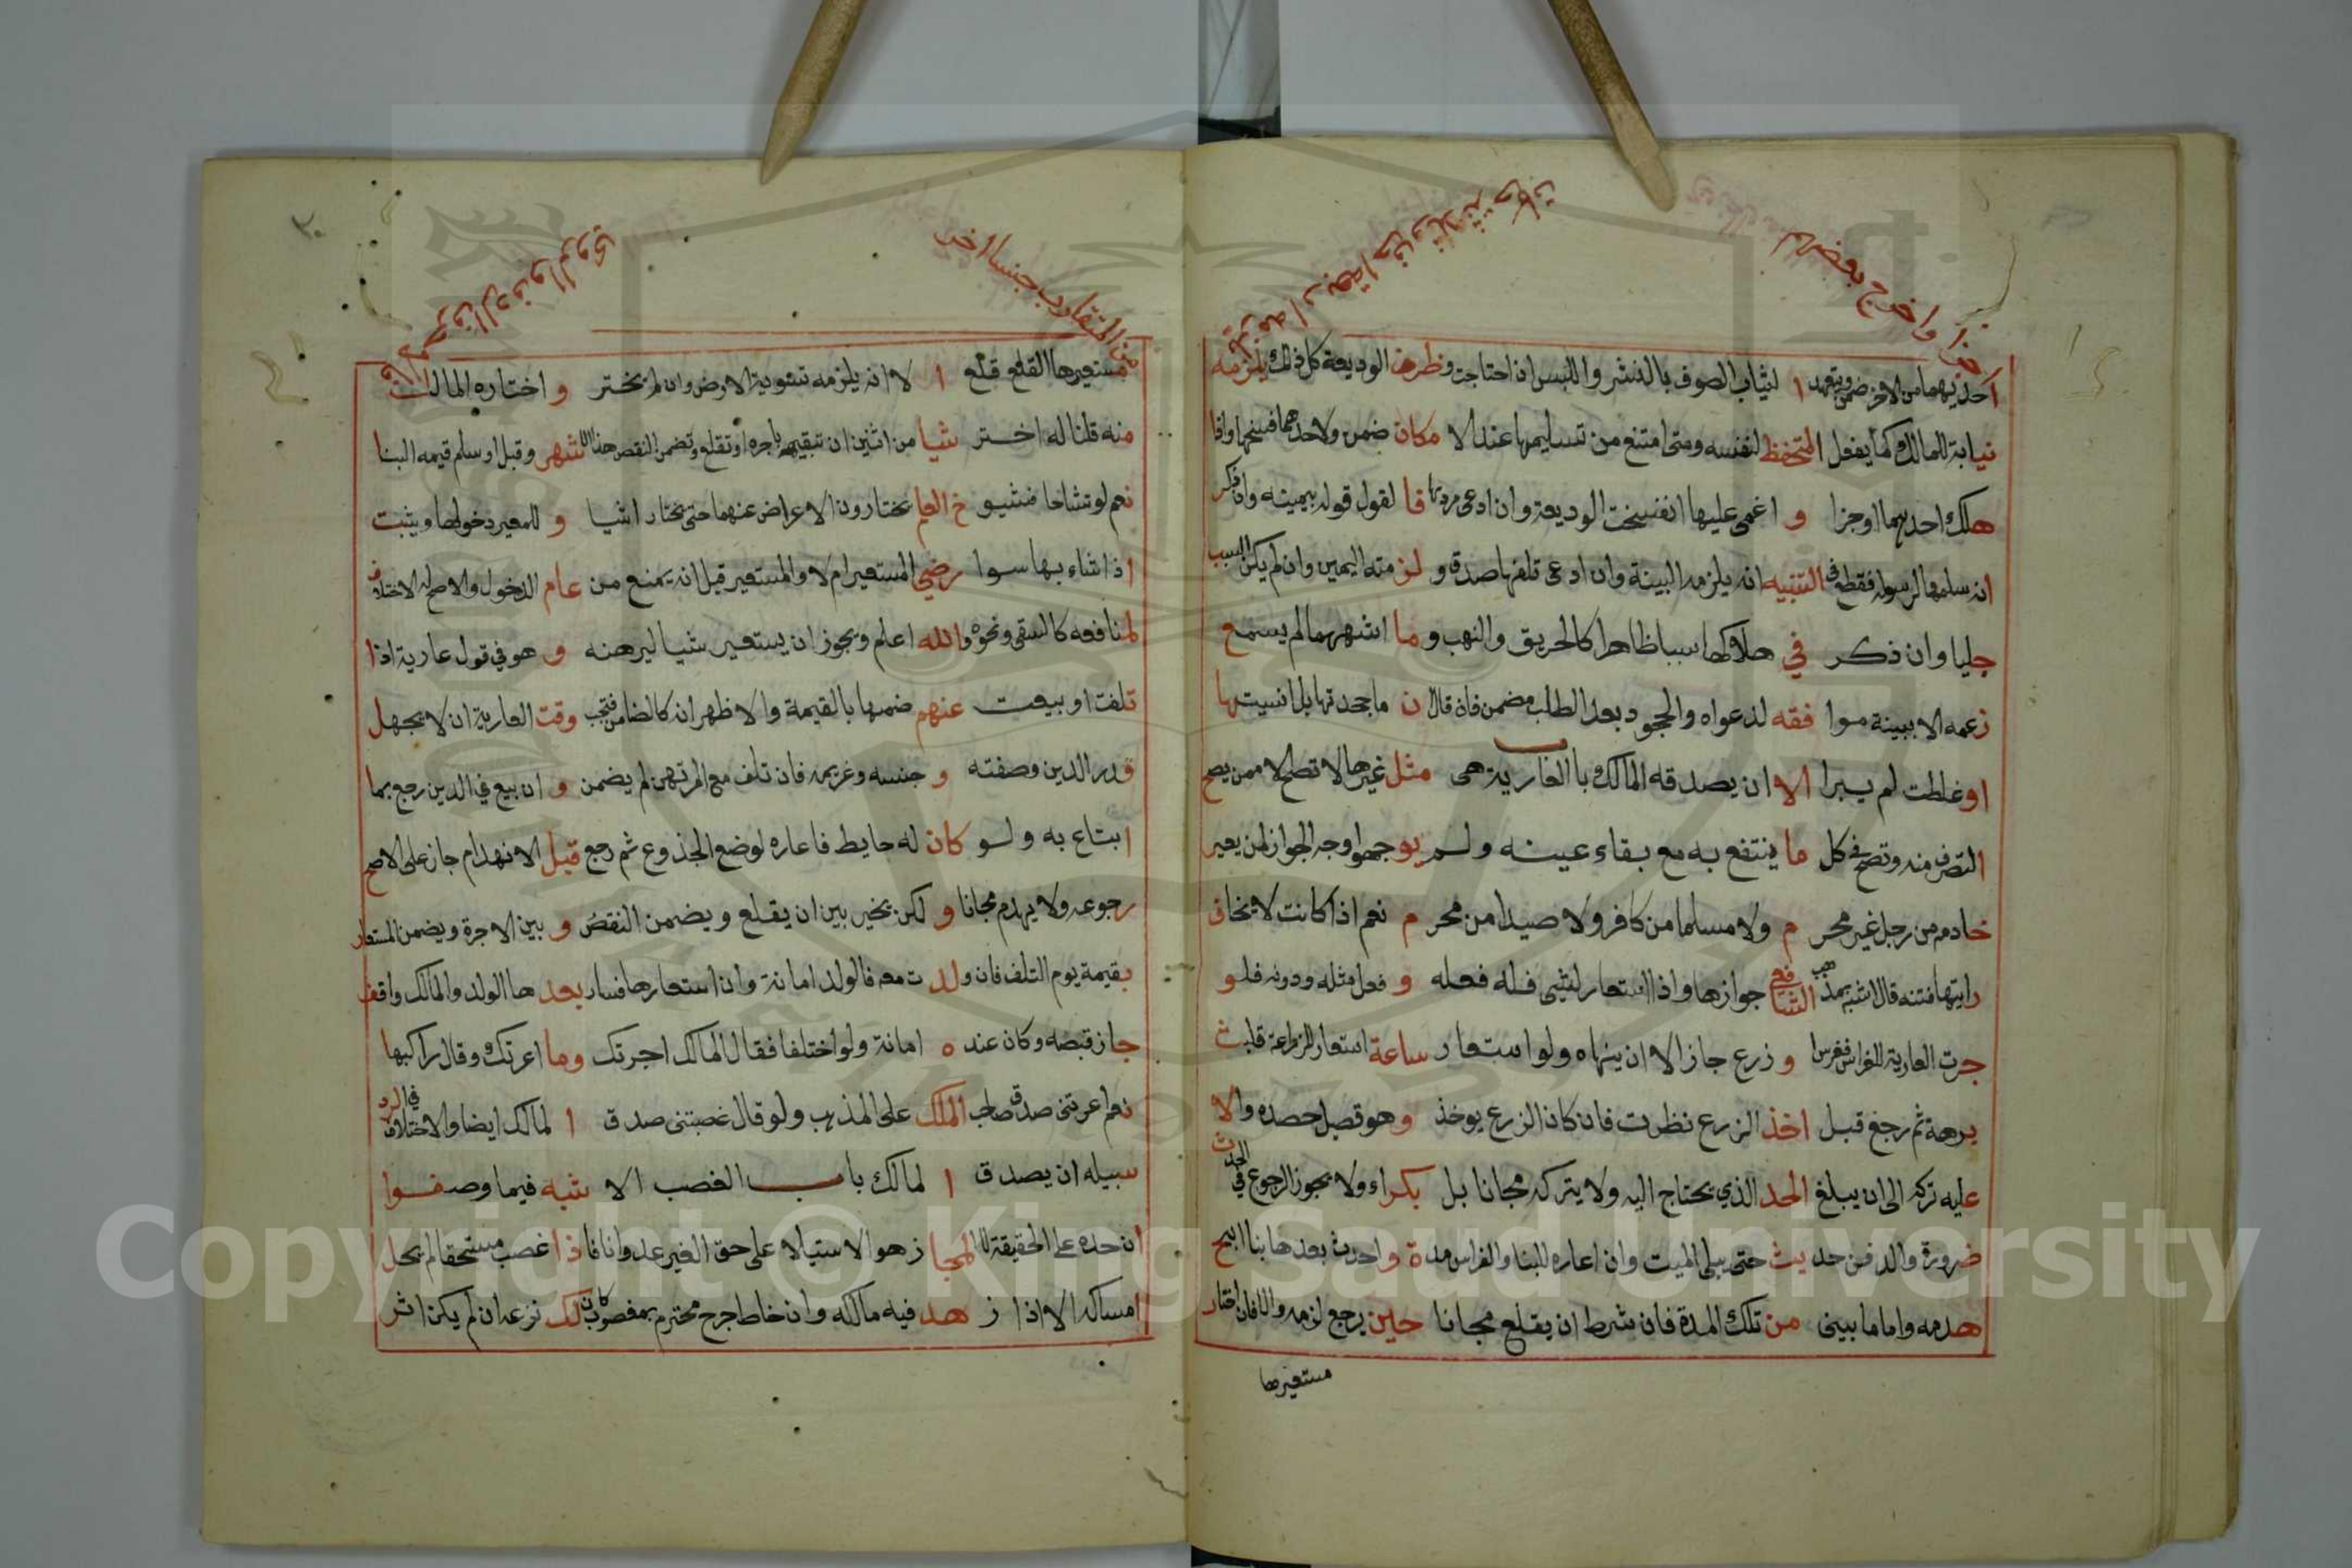 اخرج بعضه
احديهما من الاخر ضمن ويتعهد ا لثياب الصوف بالنشر واللبس ان احتاجت وظرف الوديعة كل ذلك يلزمه
نيابة للمالك كما يفعل المتحفظ لنفسه ومتى امتنع من تسليمها عند الا مكان ضمن ولاحدهما فسخها واذا
هلك احديهما اوجزا و اغمى عليها انفسخت الوديعة وان ادعى ردها فا لقول قوله بيمينه وان ذكر
انه سلمها لرسوله فقطع في التنبيه انه يلزمه البينة وان ادعى تلفها صدق و لز مته اليمين وان لم يكن السبب
جليا وان ذكر في هلاكها سببا ظاهرا كالحريق والنهب و ما اشهرهما لم يسمع
زعمه الا ببينة موا فقه لدعواه والجحود بعد الطلب مضمن فان قال ن ما جحدتها بل انسيتها
او غلطت لم يبرا الا ان يصدقه المالك باب العارية هى مثل غيرها لا تصلح الا ممن يصح
التصرف منه وتصح في كل ما ينتفع به مع بقاء عينه ولم يو جهوا وجه الجواز لمن يعير
خادمه من رجل غير محر م ولا مسلما من كافر ولا صيدا من محر م نعم اذا كانت لا يخاف
رايتها فتنه قال اشبه بمذهب الشافعي جوازها واذا استعار لشيى فله فعله و فعل مثله ودونه فلو
جرت العارية للغراس فغرس و زرع جاز الا ان ينهاه ولو استعار ساعة استعار للزراعة قلبت
برهة ثم رجع قبل اخذ الزرع نظرت فان كان الزرع يوخذ و هو قصيل حصده والا
عليه تركه الى ان يبلغ الحد الذي يحتاج اليه ولا يتركه مجانا بل بكراء ولا يجوز الرجوع في الحدث
ضرورة والدفن حد يث حتى يبلى الميت وان اعاره للبنا والغراس مدة و احدث بعدها بنا ابيح
هدمه واما ما بينى من تلك المدة فان شرط ان يقلع مجانا حين يرجع لزمه والا فان اختار
مستعيرها
من المتقارب جنسا اخر
مستعيرها القلع قلع ا لا انه يلزمه تسوية الارض وان لم يختر و اختاره المالك
منه قلنا له اختر شيا من اثنين ان تبقيهم باجره او تقلع وتضمن النقص هذا الاشهر وقبل او سلم قيمه البنا
نعم لو تشاحا فشيو خ العلم يختارون الاعراض عنهما حتى يختارا شيا و للمعير دخولها ويثبت
اذا شاء بها سوا رضي المستعير ام لا والمستعير قيل انه يمنع من عام الدخول والاصح له الاختلاف
لمنافعه كالسقى ونحوه والله اعلم ويجوز ان يستعير شيا ليرهنه و هو في قول عارية اذا
تلفت او بيعت عنهم ضمنها بالقيمة والاظهر انه كالضامن فتجب وقت العارية ان لا يجهل
قدر الدين وصفته و جنسه وغريمه فان تلف مع المرتهن لم يضمن و ان بيع في الدين رجع بما
ابتاع به ولو كان له حايط فاعاره لوضع الجذوع ثم رجع قبل الانهدام جاز على الاصح
رجوعه ولا يهدم مجانا و لكن يخير بين ان يقلع ويضمن النقص و بين الاجرة ويضمن المستعار
بقيمة يوم التلف فان ولد ت معه فالولد امانة وان استعارها فسار بعد ها الولد والمالك واقف
جاز قبضه وكان عند ه امانة ولو اختلفا فقال المالك اجرتك وما اعرتك وقال راكبها
نعم اعرتنى صدق صاحب الملك على المذهب ولو قال غصبتنى صدق ا لمالك ايضا والاختلاف في الرد
سبيله ان يصدق ا لمالك باب الغصب الا شبه فيما وصفوا
ان حده على الحقيقة لا المجا ز هو الاستيلا على حق الغير عدوانا فا ذا غصب مستحقا لم يحل
امساكه الا اذا ز هد فيه مالكه وان خاط جرح محترم بمغصوب كان لك نزعه ان لم يكن اثر
Copyright © King Saud University